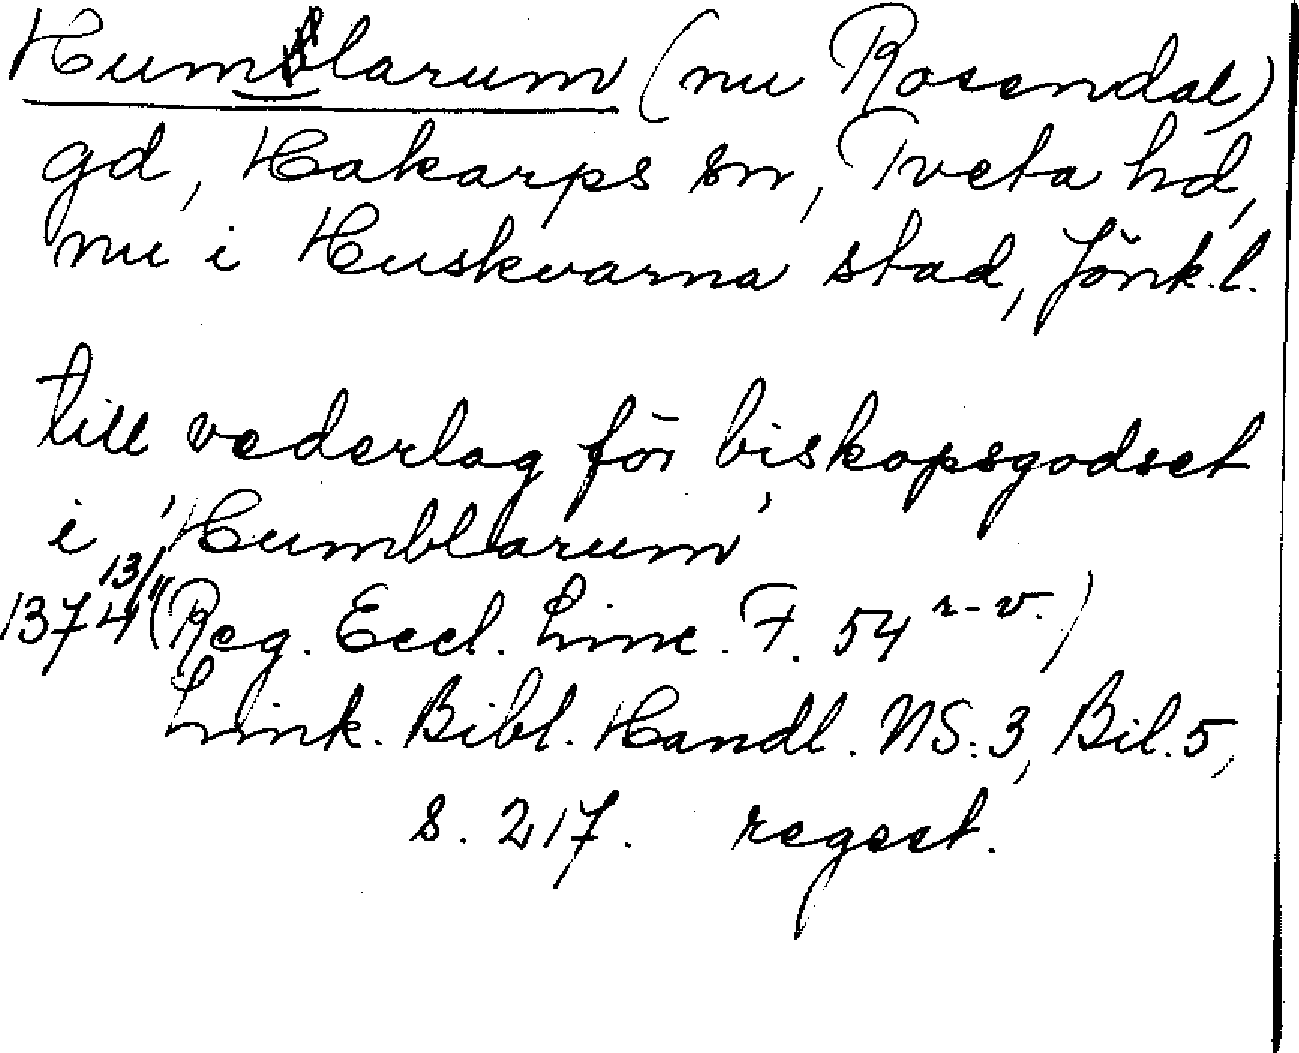 Humblarum (nu Rosendal)
gd, Hakarps sn, Tveta hd,
nu i Huskvarna stad, Jönk.l.
till vederlag för biskopsgodset
i 'Humblarum'
1374 13/11 (Reg. Eccl. Linc. F. 54 r-v.)
Link. Bibl. Handl. NS:3, Bil.5,
s. 217. regest.